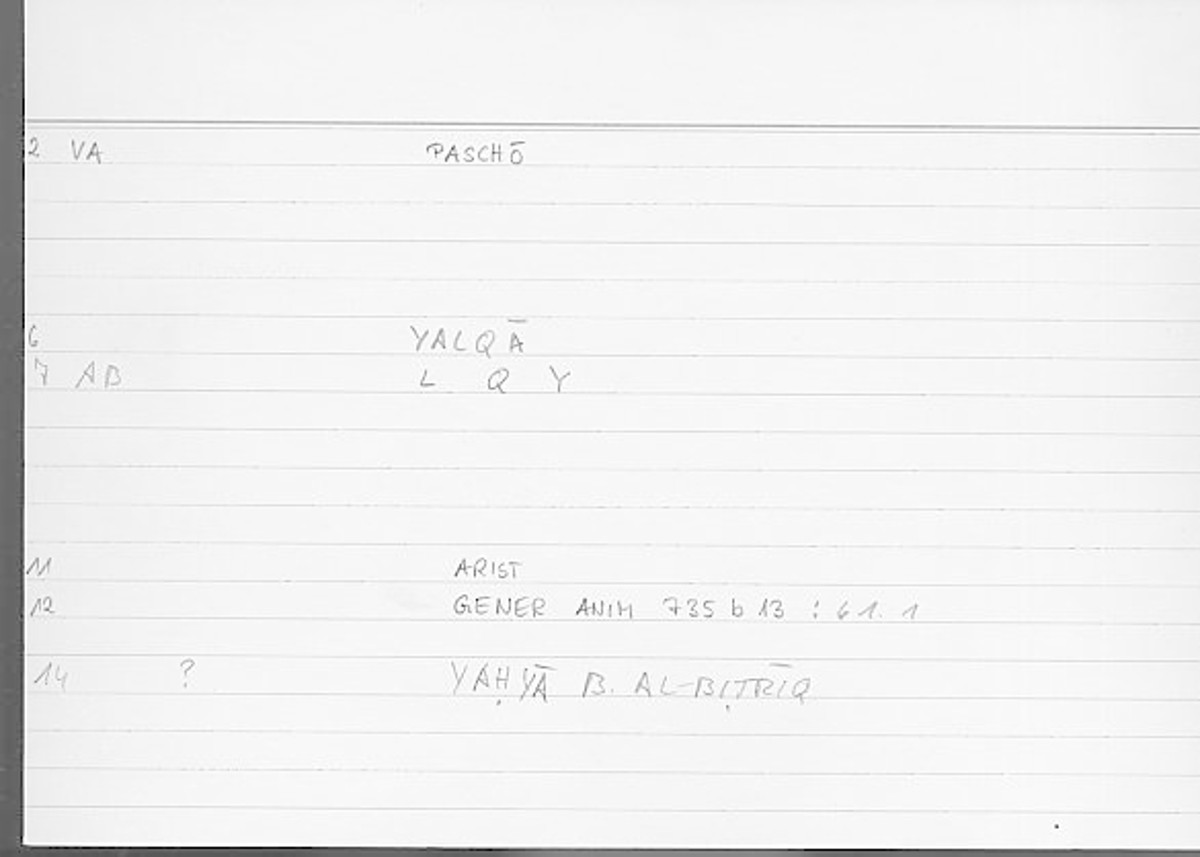 2 VA PASCHŌ
6 YALQĀ
7 AB L Q Y
11 ARIST
12 GENER ANIM 735 b 13 : 61. 1
14 ? YAḤYĀ B. AL-BIṬRĪQ